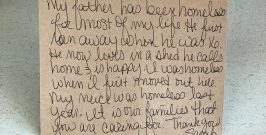 My father has been homeless
for most of my life He first
ran away when he was 10.
He now lives in a shed he calls
home & is happy. I was homeless
when I first moved out here.
My niece was homeless last
year. It is our families that
you are caring for. Thank you
Sarah